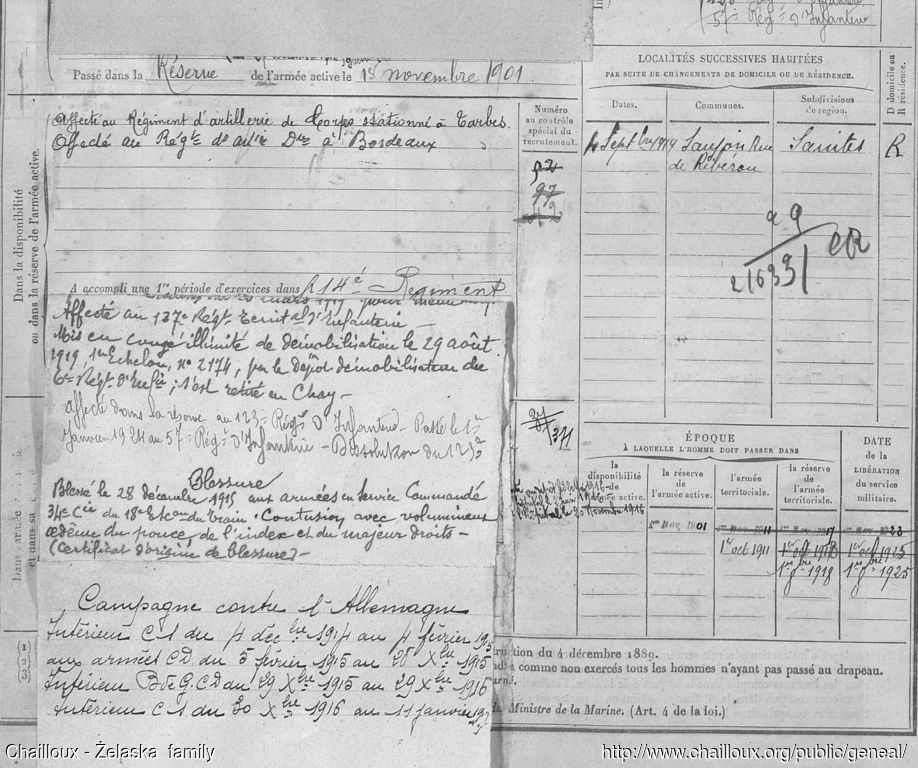 57e Rég. d'Infanterie
Passé dans la Réserve de l'armée active le 18 novembre 1901.
Affecté au Régiment d'artillerie de Corps stationné à Tarbes.
Affecté au Régt d'artie Don à Bordeaux
Numéro
au contrôle
spécial du
recrutement.
52
97
Dans la disponibilité
ou dans la réserve de l'armée active.
A accompli une 1re période d'exercices dans le 14e Régiment
Affecté au 137e Régt Territal d'Infanterie
Mis en congé illimité de démobilisation le 29 août
1919, 1er Echelon, no 2174, par le dépôt démobilisateur du
6e Régt d'Infie; s'est retiré au Chay
affecté dans la réserve au 123e Régt d'Infanterie - Passé le 1er
Janvier 1921 au 57e Régt d'Infanterie - Dissolution du 123e
Blessure
Blessé le 28 décembre 1915 aux armées en service commandé
34e Cie du 18e Escon du Train. Contusion avec volumineux
œdème du pouce, de l'index et du majeur droits -
(Certificat d'origine de blessure) -
Campagne contre l'Allemagne
Intérieur CS du 4 décbre 1914 au 4 février 1915
aux armées CD du 5 février 1915 au 28 Xbre 1915
Intérieur B de G. CD du 29 Xbre 1915 au 29 Xbre 1916
Intérieur CS du 30 Xbre 1916 au 11 janvier
(1)
(2)
(3)
LOCALITÉS SUCCESSIVES HABITÉES
PAR SUITE DE CHANGEMENTS DE DOMICILE OU DE RÉSIDENCE.
Dates.
Communes.
Subdivisions
de région.
D domicile ou
R résidence.
4 Septbre 1914
Saujon Rue
de Ribérou
Saintes
R
ÉPOQUE
À LAQUELLE L'HOMME DOIT PASSER DANS
la
disponibilité
de
l'armée active.
la réserve
de
l'armée active.
l'armée
territoriale.
la réserve
de
l'armée
territoriale.
DATE
de la
LIBÉRATION
du
SERVICE
militaire.
1er Nov. 1901
1er Nov. 1911
1er Nov. 1917
1er Nov. 1923
1er oct 1911
1er oct 1918
1er oct 1925
1er 1918
1er 1925
ruction du 4 décembre 1889.
comme non exercés tous les hommes n'ayant pas passé au drapeau.
Ministre de la Marine. (Art. 4 de la loi.)
Chailloux - Żelaska family
http://www.chailloux.org/public/geneal/